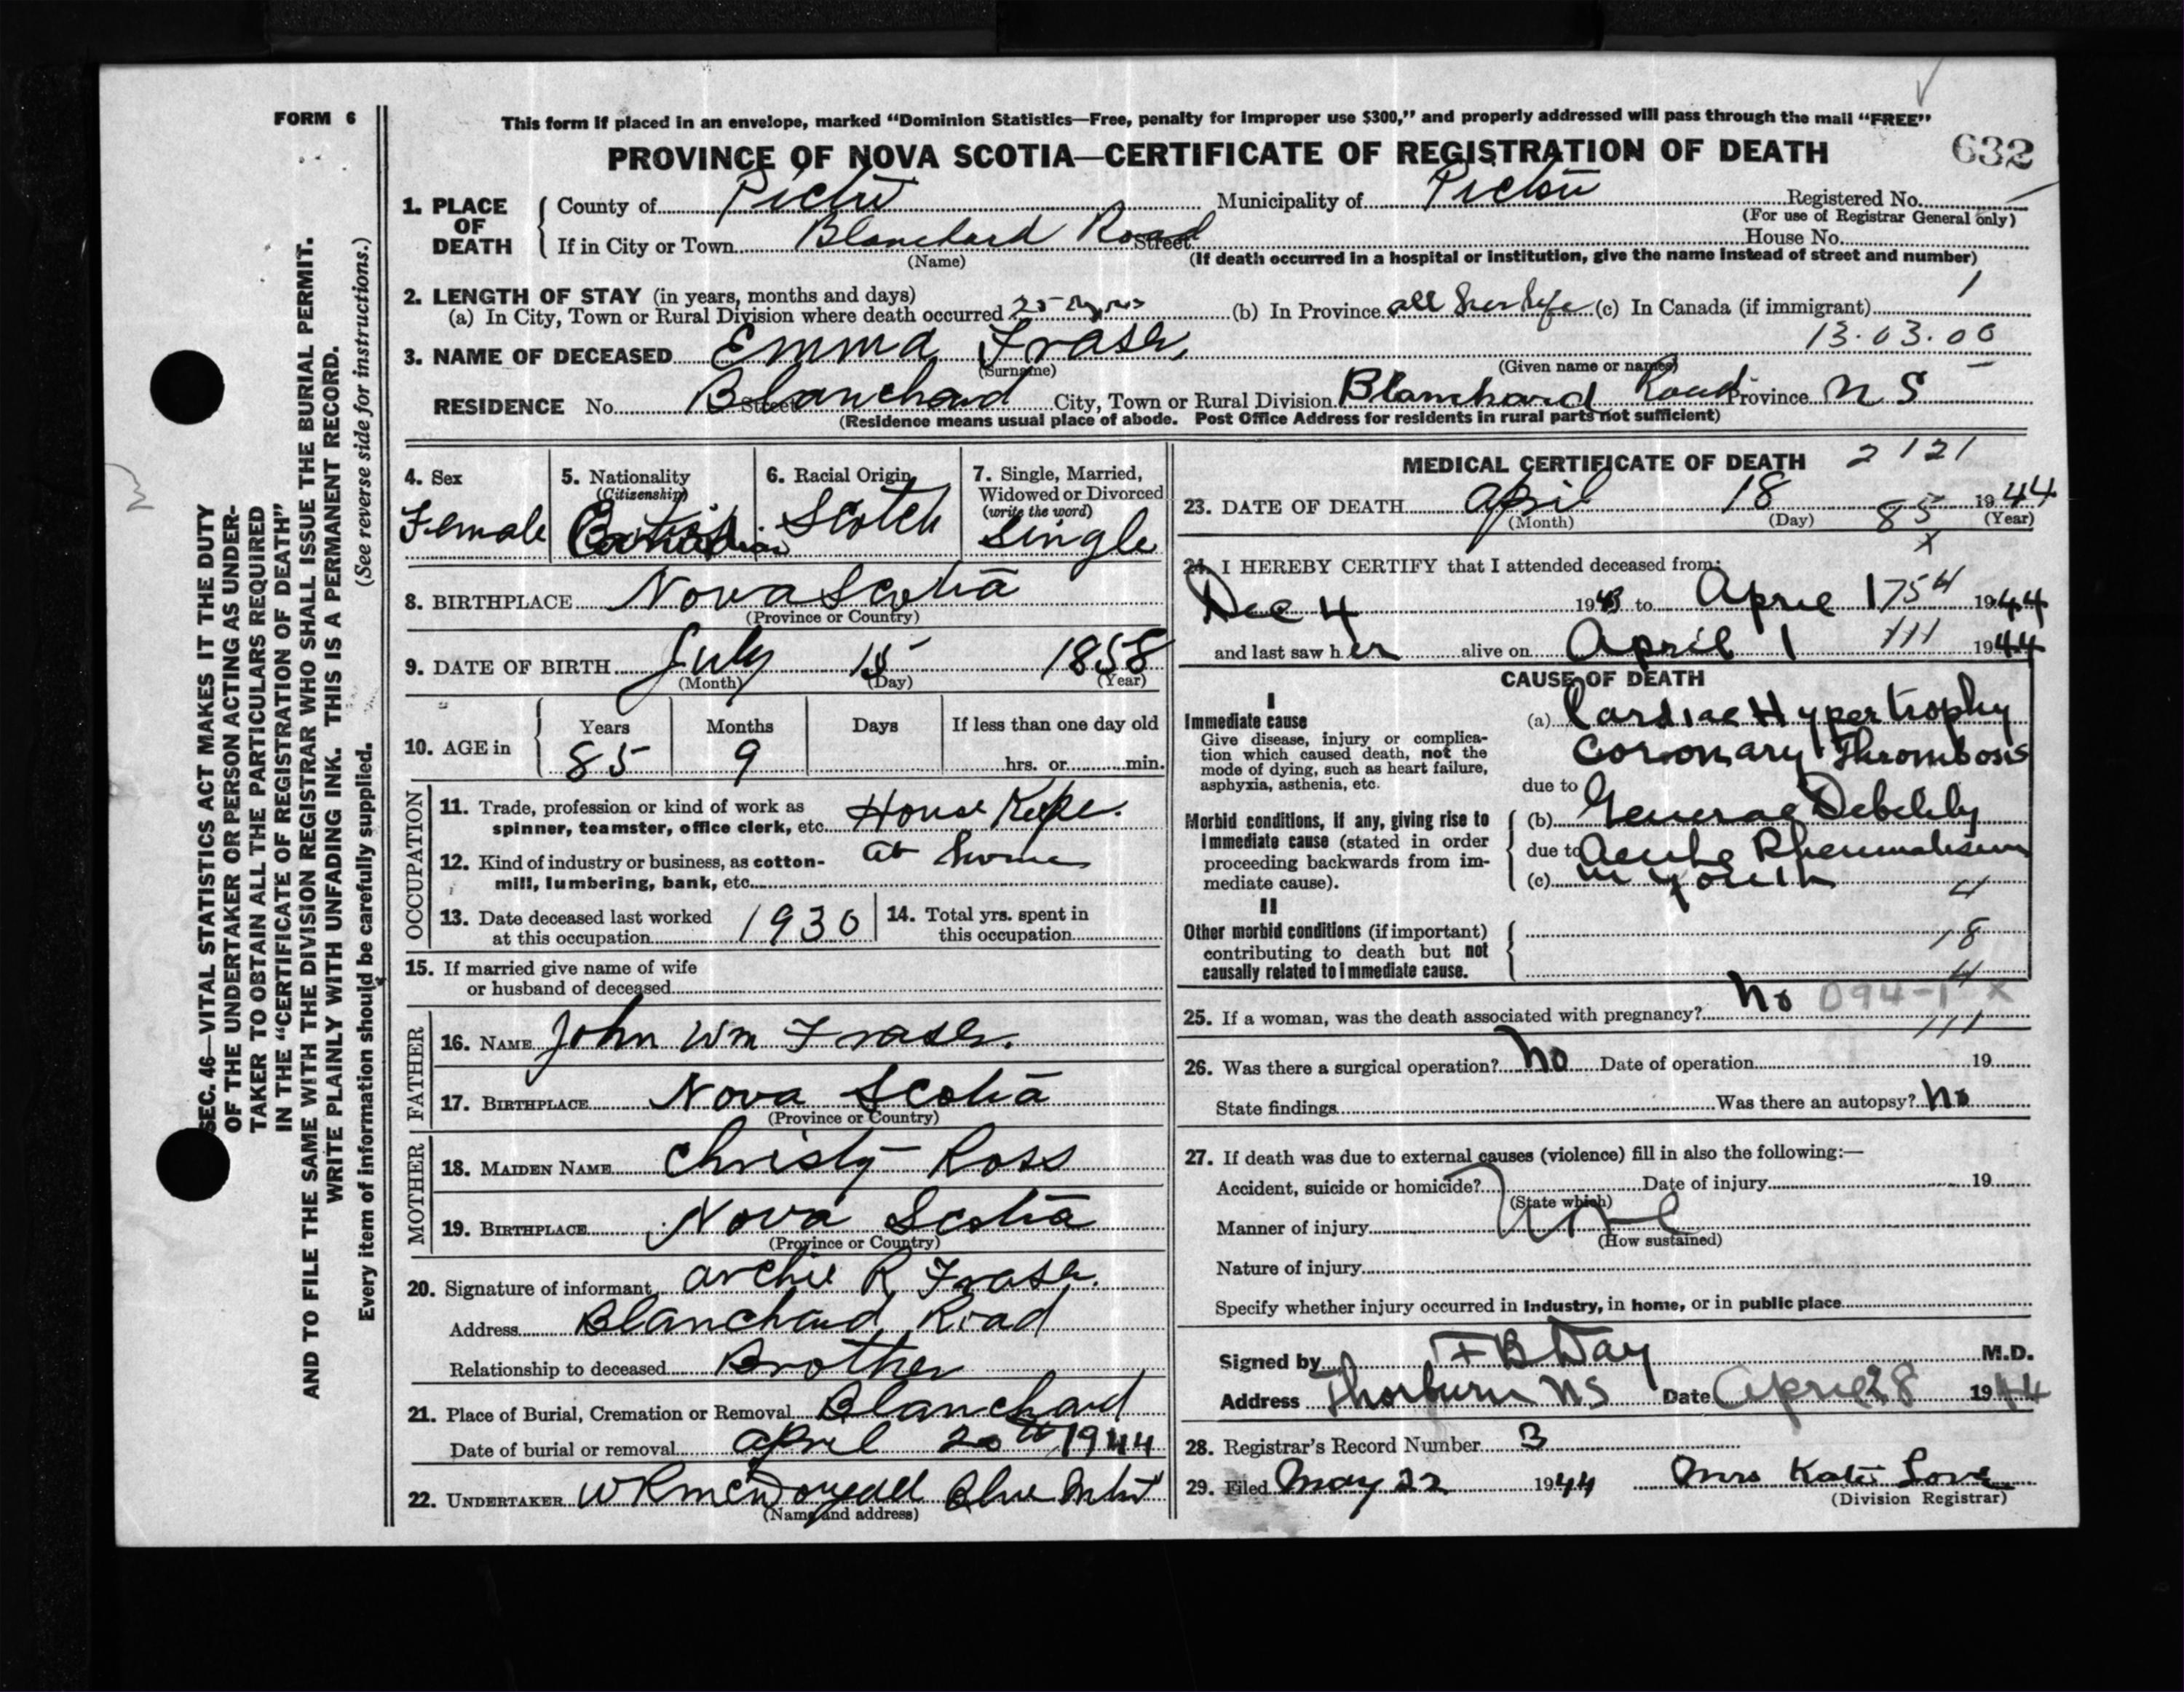 FORM 6
This form if placed in an envelope, marked “Dominion Statistics—Free, penalty for improper use $300,” and properly addressed will pass through the mail “FREE”
PROVINCE OF NOVA SCOTIA—CERTIFICATE OF REGISTRATION OF DEATH
632
1. PLACE OF DEATH
County of Pictou Municipality of Pictou Registered No.
(For use of Registrar General only)
If in City or Town Blanchard Road Street House No.
(Name) (If death occurred in a hospital or institution, give the name instead of street and number)
2. LENGTH OF STAY (in years, months and days)
(a) In City, Town or Rural Division where death occurred 25 (b) In Province all her life (c) In Canada (if immigrant)
1
3. NAME OF DECEASED Emma Fraser 13.03.00
(Surname) (Given name or names)
RESIDENCE No. Blanchard Street City, Town or Rural Division Blanchard Road Province N S
(Residence means usual place of abode. Post Office Address for residents in rural parts not sufficient)
4. Sex
Female
5. Nationality
(Citizenship)
Canadian
6. Racial Origin
Scotch
7. Single, Married,
Widowed or Divorced
(write the word)
Single
8. BIRTHPLACE Nova Scotia
(Province or Country)
9. DATE OF BIRTH July 15 1858
(Month) (Day) (Year)
10. AGE in
Years Months Days If less than one day old
85 9 hrs. or min.
OCCUPATION
11. Trade, profession or kind of work as
spinner, teamster, office clerk, etc. House Keeper
12. Kind of industry or business, as cotton-
mill, lumbering, bank, etc. at home
13. Date deceased last worked
at this occupation 1930
14. Total yrs. spent in
this occupation
15. If married give name of wife
or husband of deceased
FATHER
16. NAME John Wm Fraser
17. BIRTHPLACE Nova Scotia
(Province or Country)
MOTHER
18. MAIDEN NAME Christy Ross
19. BIRTHPLACE Nova Scotia
(Province or Country)
20. Signature of informant Archie R Fraser
Address Blanchard Road
Relationship to deceased Brother
21. Place of Burial, Cremation or Removal Blanchard
Date of burial or removal April 20th 1944
22. UNDERTAKER W R McDougall Blue Mtn
(Name and address)
MEDICAL CERTIFICATE OF DEATH 2 121
23. DATE OF DEATH April 18 85 1944
(Month) (Day) (Year)
x
24. I HEREBY CERTIFY that I attended deceased from:
Dec 4 1943 to April 17 54 1944
and last saw her alive on April 1 111 1944
CAUSE OF DEATH
I
Immediate cause
Give disease, injury or complica-
tion which caused death, not the
mode of dying, such as heart failure,
asphyxia, asthenia, etc.
(a) Cardiac Hypertrophy
Coronary Thrombosis
due to
Morbid conditions, if any, giving rise to
immediate cause (stated in order
proceeding backwards from im-
mediate cause).
(b) General Debility
due to Acute Rheumatism
(c) in youth
4
II
Other morbid conditions (if important)
contributing to death but not
causally related to immediate cause.
18
4
25. If a woman, was the death associated with pregnancy? No 094-1 x
111
26. Was there a surgical operation? No Date of operation 19
State findings Was there an autopsy? No
27. If death was due to external causes (violence) fill in also the following:—
Accident, suicide or homicide? Date of injury 19
(State which)
Manner of injury
(How sustained)
Nature of injury
Specify whether injury occurred in industry, in home, or in public place
Signed by F B Day M.D.
Address Thorburn NS Date April 28 1944
28. Registrar's Record Number 3
29. Filed May 22 1944 Mrs Kate Love
(Division Registrar)
SEC. 46—VITAL STATISTICS ACT MAKES IT THE DUTY
OF THE UNDERTAKER OR PERSON ACTING AS UNDER-
TAKER TO OBTAIN ALL THE PARTICULARS REQUIRED
IN THE “CERTIFICATE OF REGISTRATION OF DEATH”
AND TO FILE THE SAME WITH THE DIVISION REGISTRAR WHO SHALL ISSUE THE BURIAL PERMIT.
WRITE PLAINLY WITH UNFADING INK. THIS IS A PERMANENT RECORD.
Every item of information should be carefully supplied. (See reverse side for instructions.)